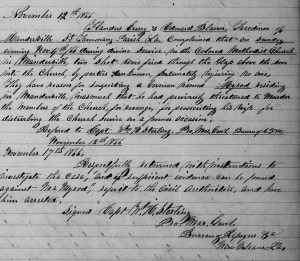 November 12th 1866
Mandeville St. Tammany Parish La. Complained that on Sunday
evening Nov 4th/66 during divine service, in the Colored Methodist Church
in Mandeville, two shot were fired through the glass above the
into the Church, by parties unknown, fortunately injuring no one
They have reason for suspecting a Woman named residing
in Mandeville, inasmuch that he had previously threatened to Murder
the Member of the Church, for revenge, for prosecuting his wife for
disturbing the Church Service on a previous occasion.
Referred to Capt Wm H. Sterling Pro. Mar. Genl. Bureau &c
November 13th 1866
November 17th 1866.
Respectfully returned with instructions to
investigate the case, and if sufficient evidence can be found
against report to the Civil Authorities, and have
him arrested.
Signed Capt W. H. Sterling
Pro. Mar. Genl.
Bureau of Refugees &c
New Orleans La.